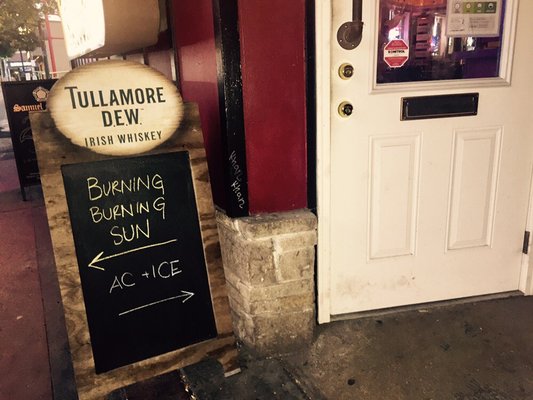 TULLAMORE
DEW.
IRISH WHISKEY
BURNING
BURNING
SUN
AC + ICE
Samuel